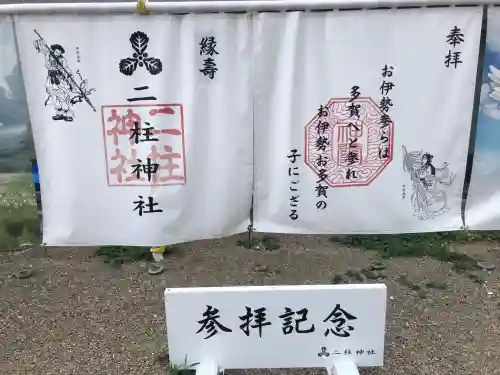 奉拝
お伊勢参らば
多賀へと垂れ
お伊勢お多賀の
子にござる
縁寿
二柱神社
二柱
神社
参拝記念
二柱神社